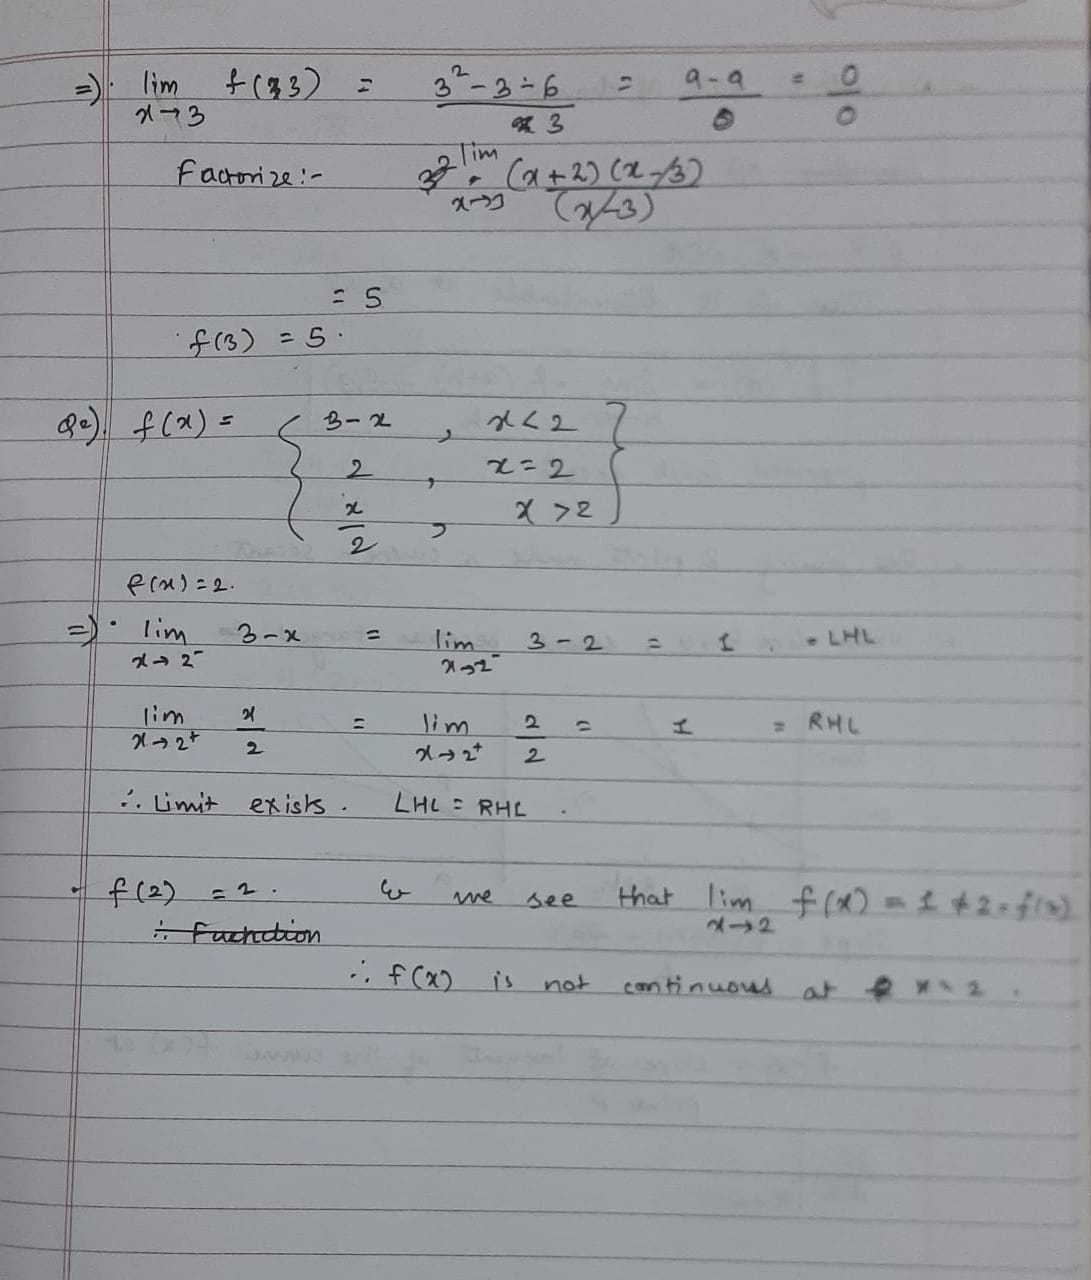 => · lim f(3) = 3² - 3 - 6 = 9 - 9 = 0
x→3 3 0 0
Factorize :- lim (x+2)(x-3)
x→3 (x-3)
= 5
· f(3) = 5 ·
Q2) f(x) = { 3-x , x < 2
2 , x = 2
x/2 , x > 2 }
f(x) = 2.
=> · lim 3-x = lim 3-2 = 1 . = LHL
x→2⁻ x→2⁻
lim x/2 = lim 2/2 = 1 = RHL
x→2⁺ x→2⁺
∴ Limit exists . LHL = RHL .
· f(2) = 2 . & we see that lim f(x) = 1 ≠ 2 = f(x)
x→2
∴ Function
∴ f(x) is not continuous at x = 2 .